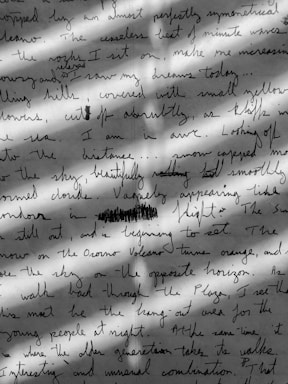 topped by an almost perfectly symmetrical
The ceaseless beat of minute waves
the rocks I sit on, make me increasin
and I saw my dreams today...
lling hills, covered with small yellow
lowers, cut off abruptly, as cliffs
he sea. I am in awe. Looking off
to the distance... snow capped mo
to the sky, beautifully smoothly
ormed clouds. Vaguely appearing like
in flight. The su
still out, and is beginning to set. The
now on the Osorno Volcano turns orange, and
the sky on the opposite horizon. As
walk back through the Plaza, I see tha
his must be the hang-out area for the
young people at night. At the same time, it
where the older generation takes its walks.
Interesting and unusual combination. That